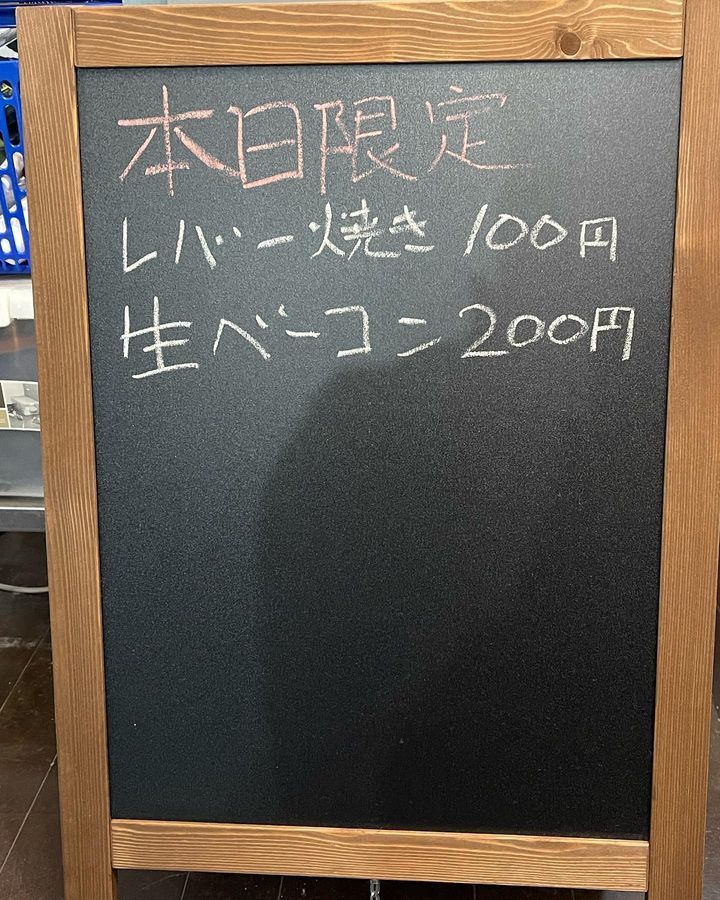 本日限定
レバー焼き 100円
生ベーコン 200円